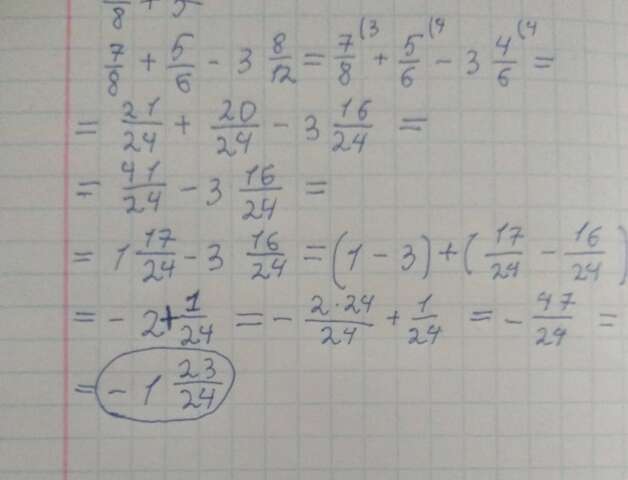 7/8 + 5
7/8 + 5/6 - 3 8/12 = 7/8 (3 + 5/6 (4 - 3 4/6 (4 =
= 21/24 + 20/24 - 3 16/24 =
= 41/24 - 3 16/24 =
= 1 17/24 - 3 16/24 = (1 - 3) + (17/24 - 16/24)
= - 2 + 1/24 = - 2·24/24 + 1/24 = - 47/24 =
= - 1 23/24